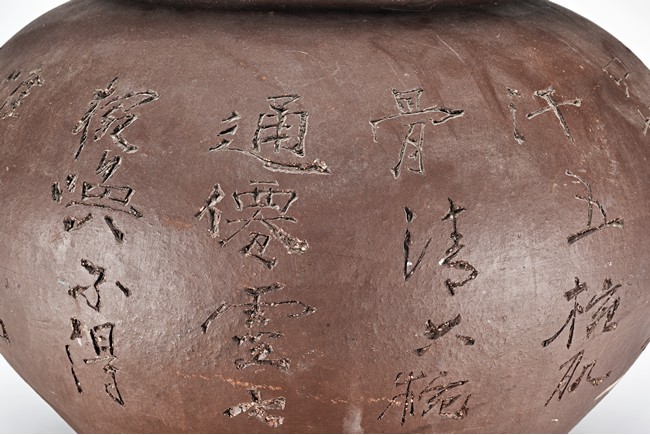 汗五椀肌
骨清六椀
通僊霊七
椀喫不得